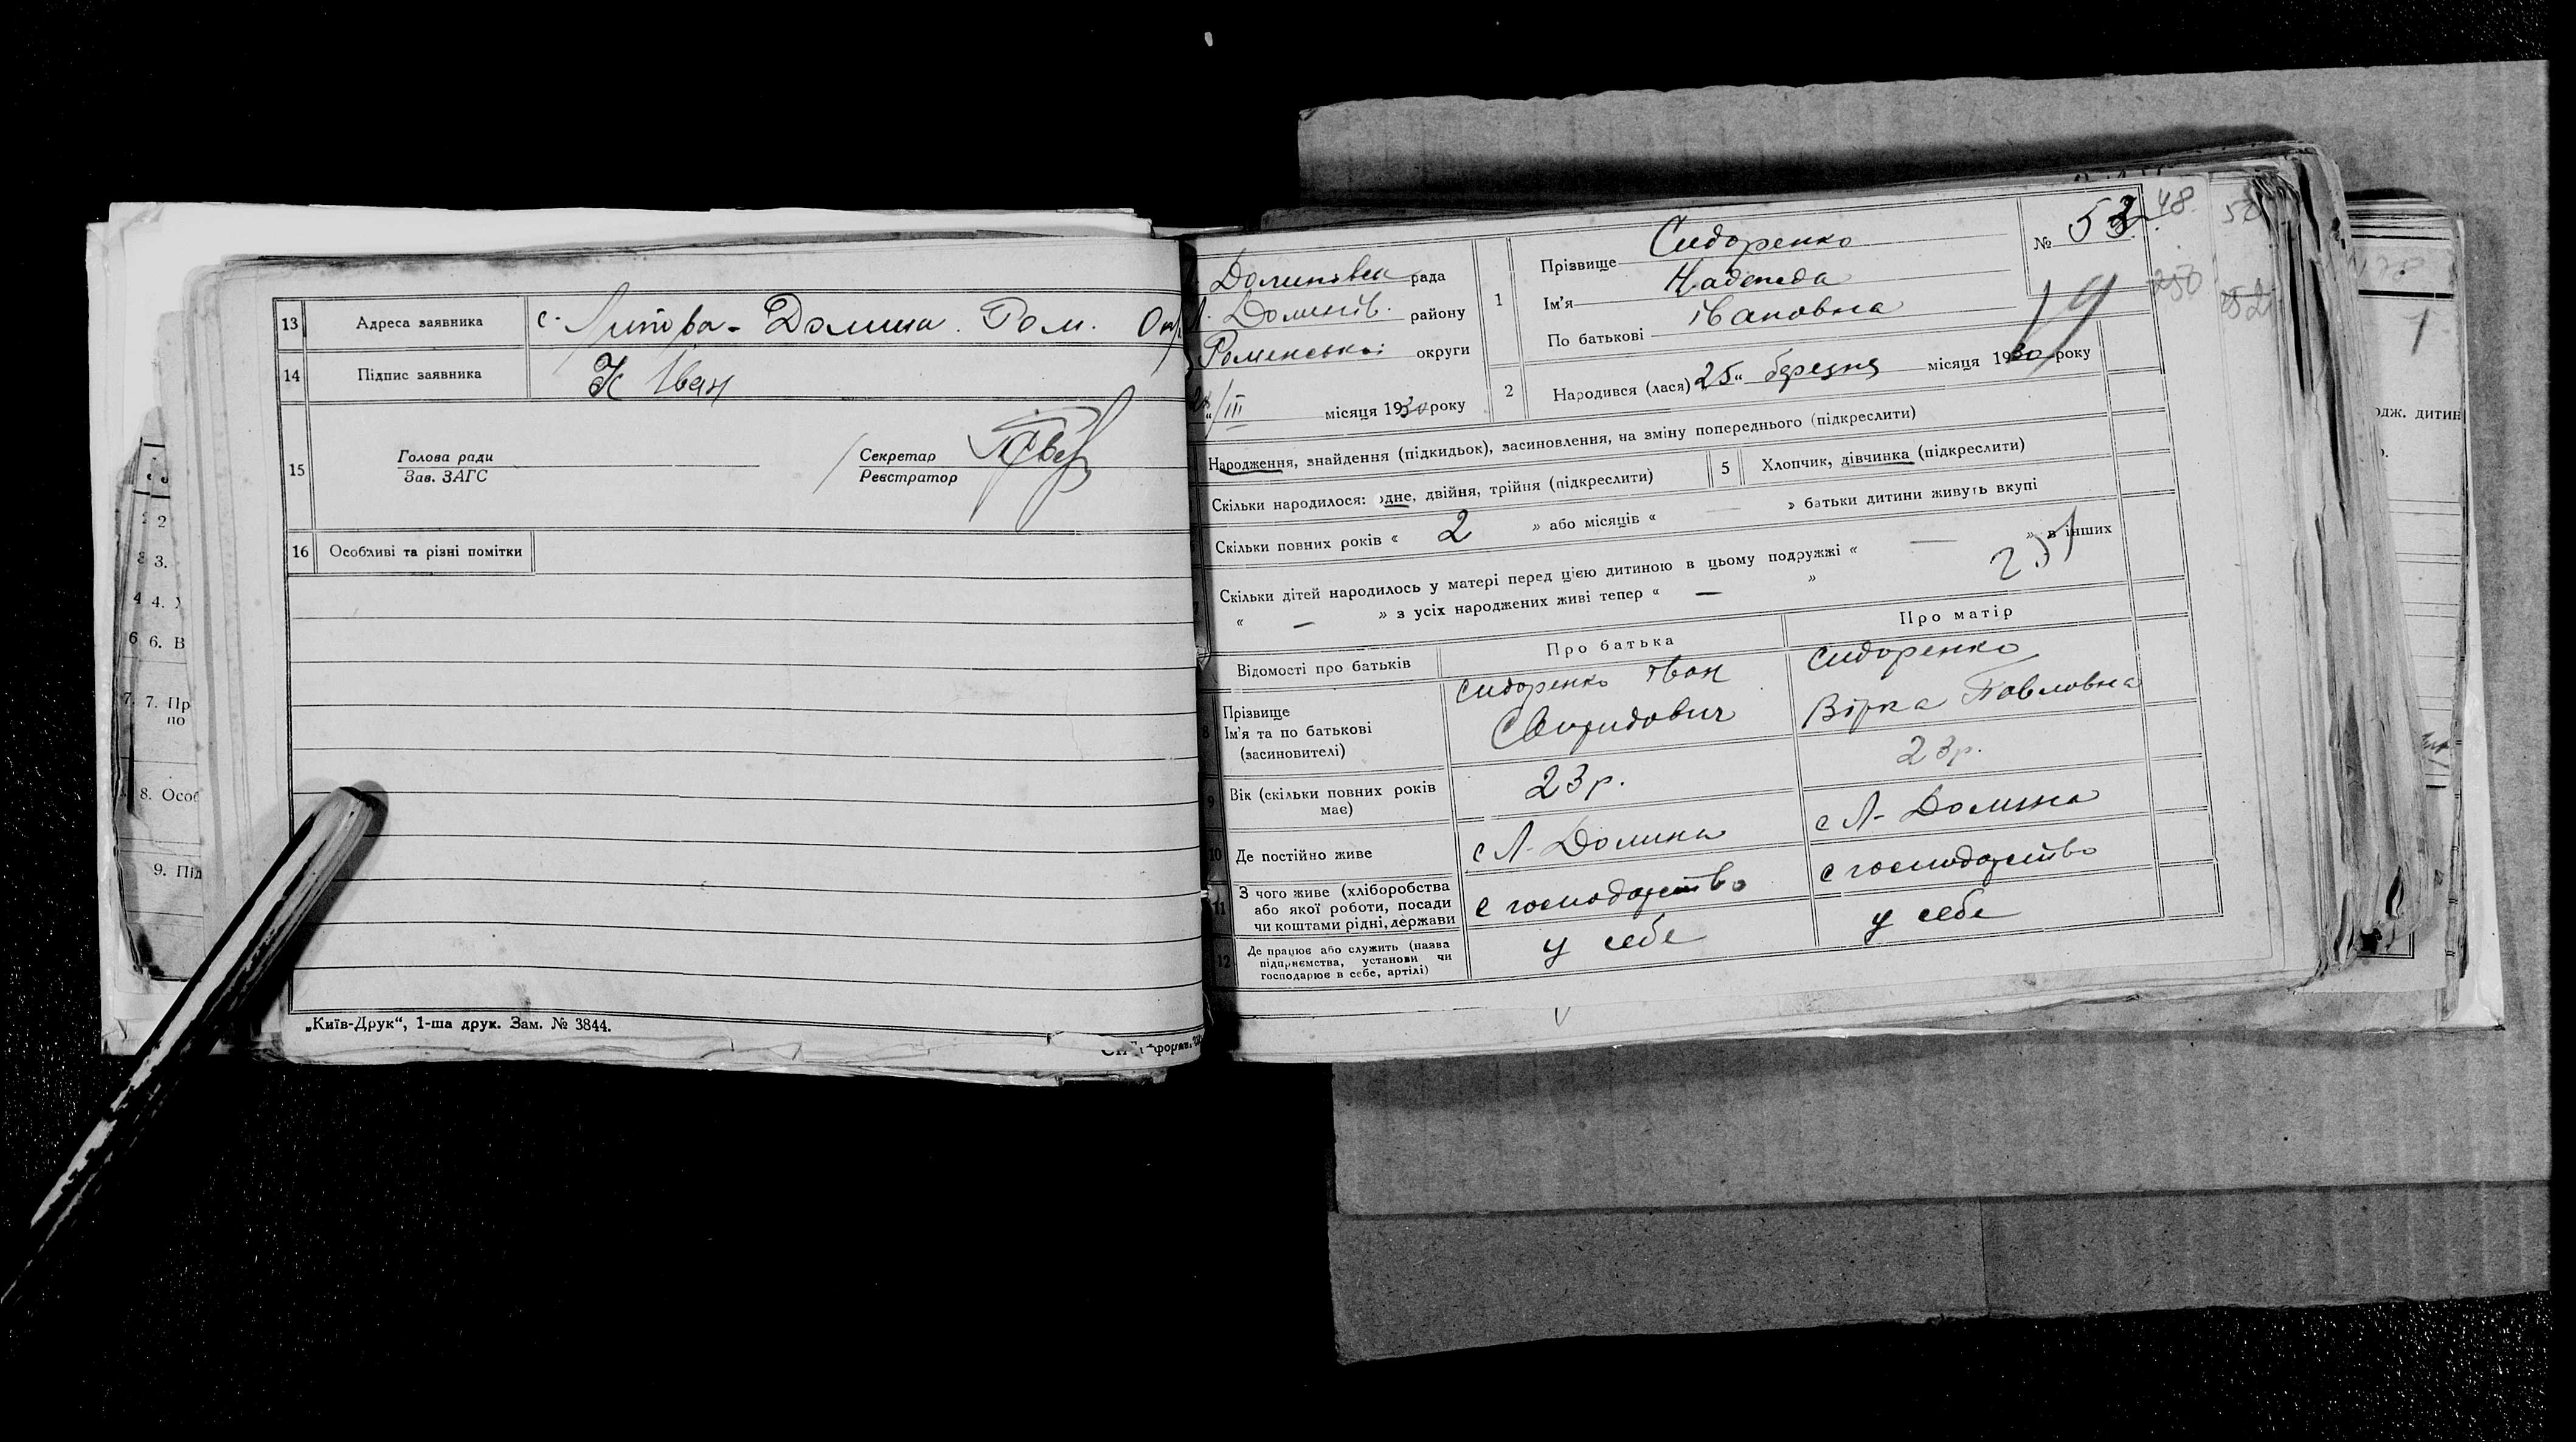 13 Адреса заявника с. Липова-Долина. Ром. Окр
14 Підпис заявника Іван
15 Голова ради Секретар
Зав. ЗАГС Реєстратор
16 Особливі та різні помітки
„Київ-Друк“, 1-ша друк. Зам. № 3844.
2
3.
4 4.
6 6. В
7. 7. Пр
по
8. Особ
9. Під
Долинівська рада
Л. Долинів. району
Роменської округи
/III місяця 1930 року
1 Прізвище Сидоренко
Ім'я Надежда
По батькові Івановна
№ 53
48.
250
19
2 Народився (лася) 25 „ березня місяця 1930 року
Народження, знайдення (підкидьок), засиновлення, на зміну попереднього (підкреслити)
Скільки народилося: одне, двійня, трійня (підкреслити) 5 Хлопчик, дівчинка (підкреслити)
Скільки повних років « 2 » або місяців « — » батьки дитини живуть вкупі
Скільки дітей народилось у матері перед цією дитиною в цьому подружжі « — » в інших
« — » з усіх народжених живі тепер « — »
Відомості про батьків Про батька Про матір
8 Прізвище
Ім'я та по батькові
(засиновителі)
Сидоренко Іван
Свиридович
Сидоренко
Вірка Павловна
9 Вік (скільки повних років має) 23 р. 23 р.
10 Де постійно живе с Л-Долина с Л-Долина
11 З чого живе (хліборобства
або якої роботи, посади
чи коштами рідні, держави
с господарство с господарство
12 Де працює або служить (назва
підприємства, установи чи
господарює в себе, артілі)
у себе у себе
одж. дитин